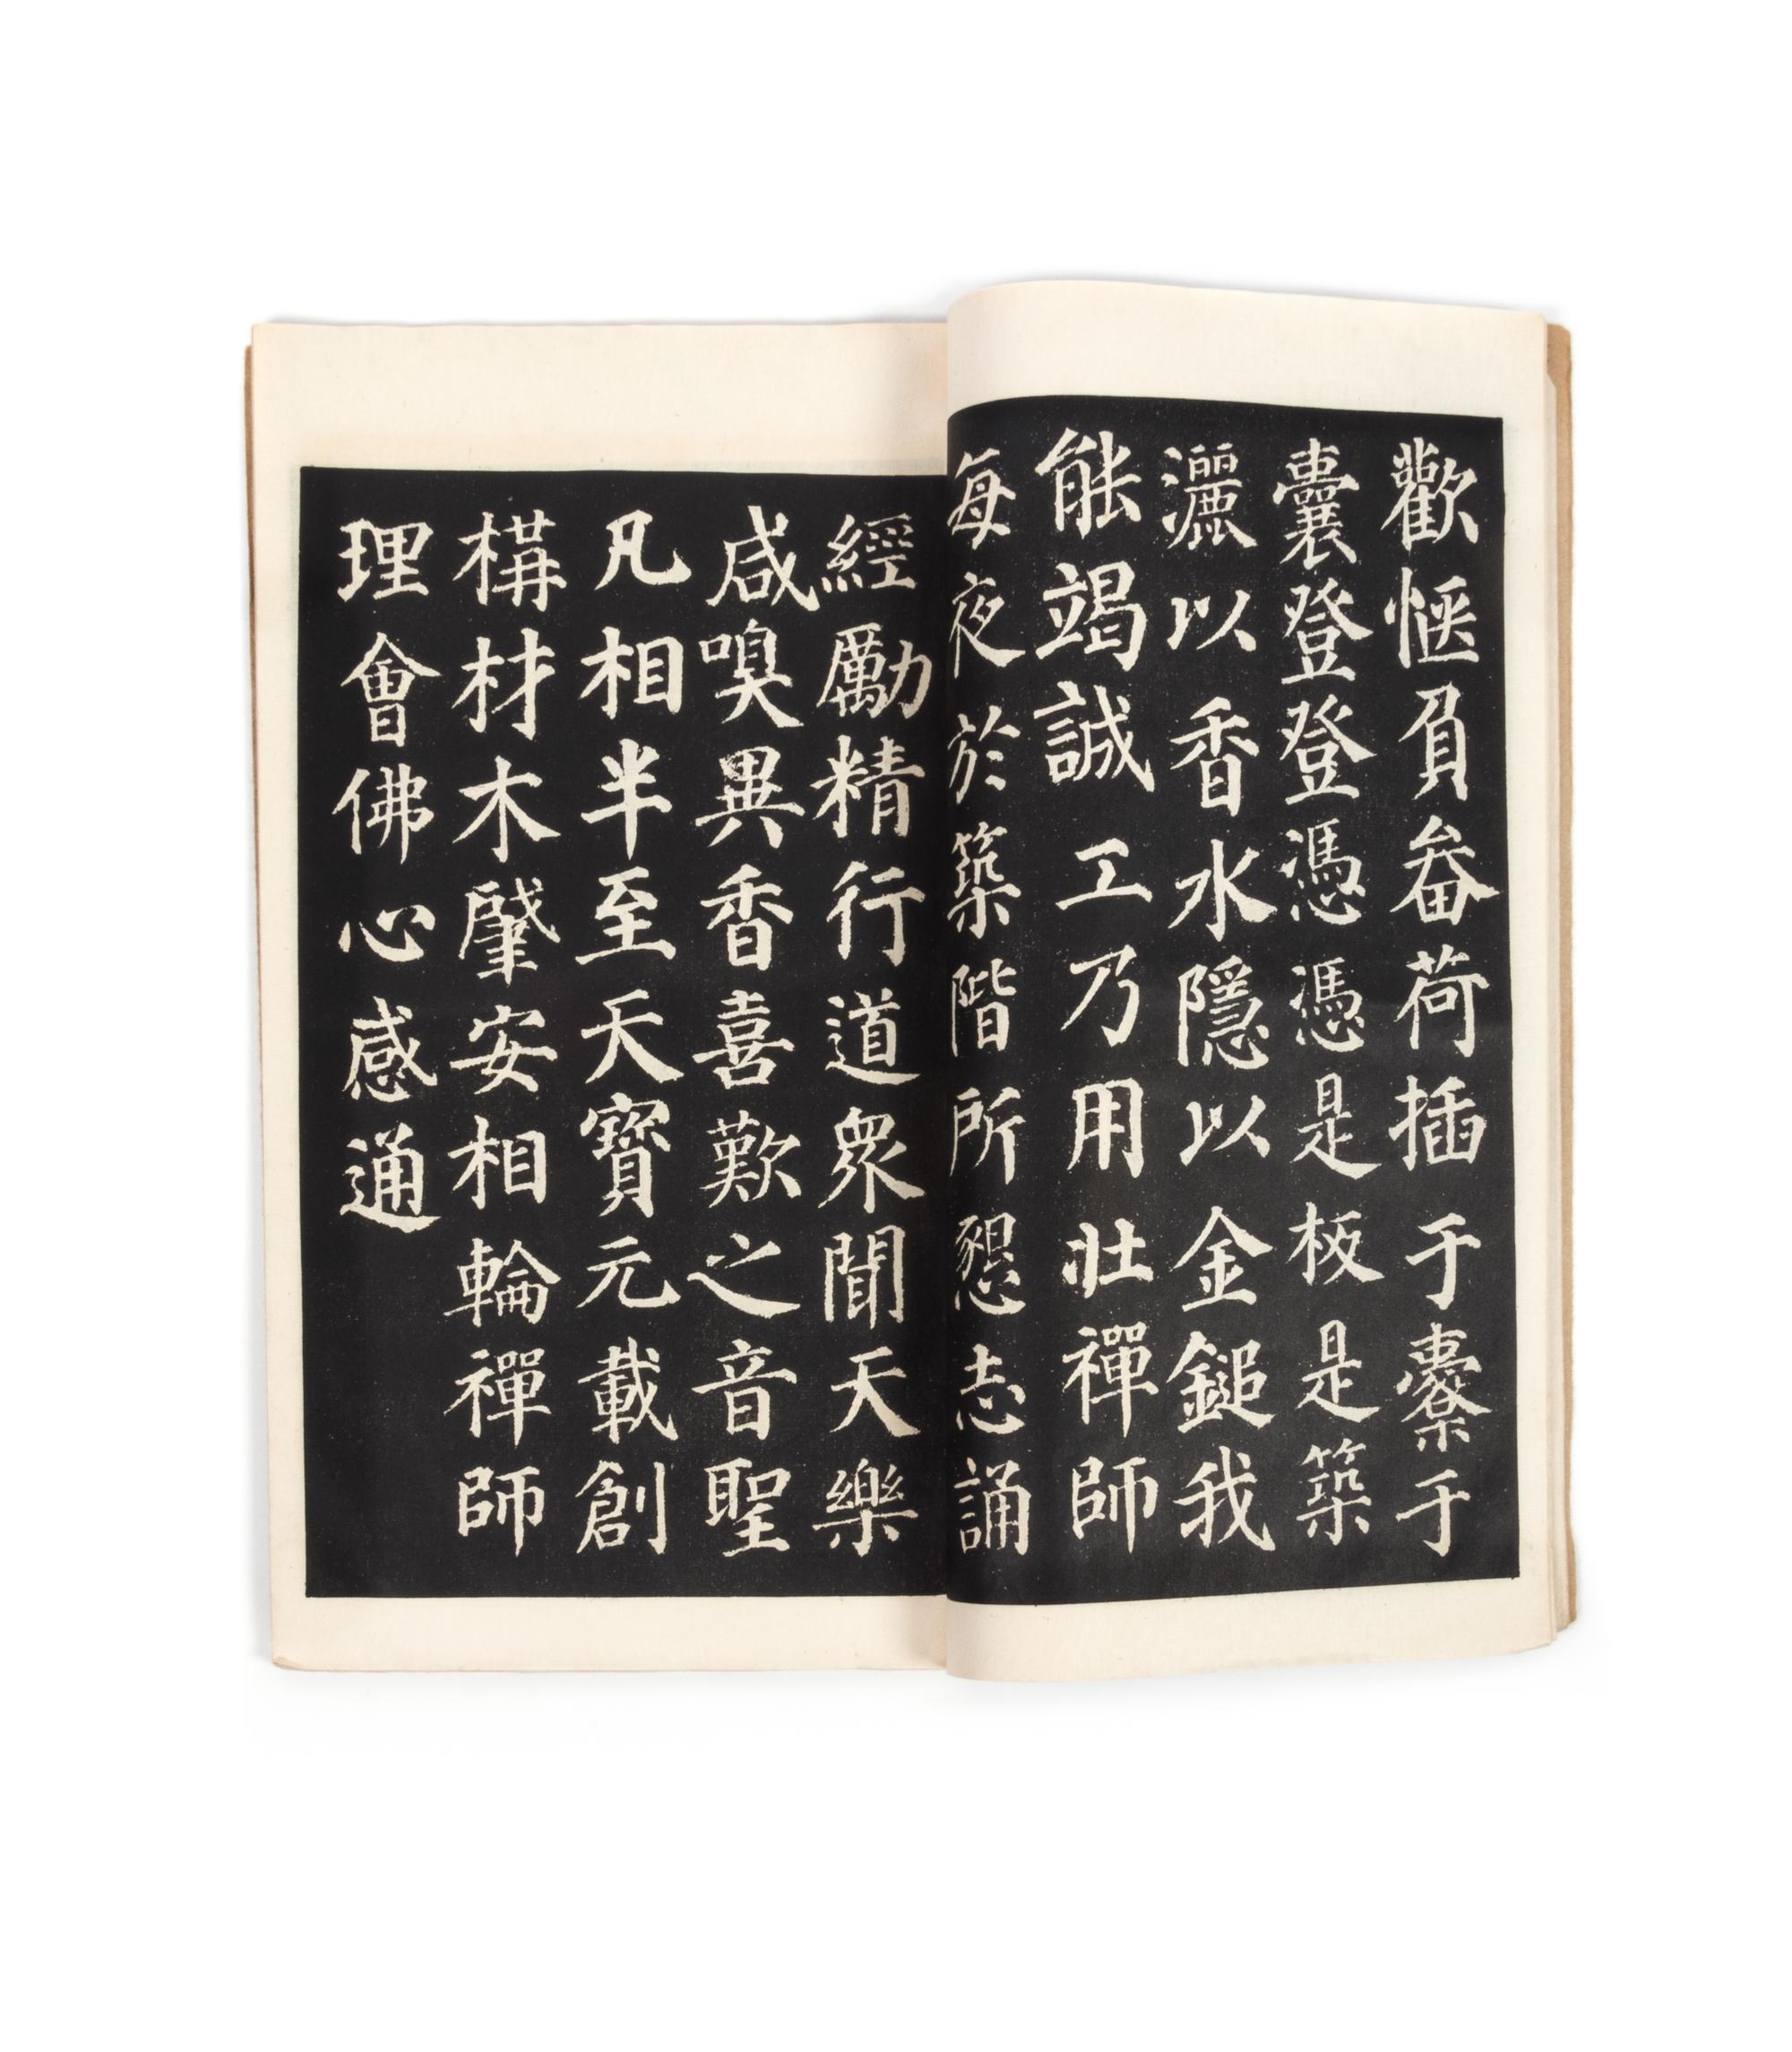 歡愜負畚荷插于橐于
囊登登憑憑是板是築
灑以香水隱以金鎚我
能竭誠工乃用壯禪師
每夜於築階所懇志誦
經勵精行道衆聞天樂
咸嗅異香喜歎之音聖
凡相半至天寶元載創
構材木肇安相輪禪師
理會佛心感通